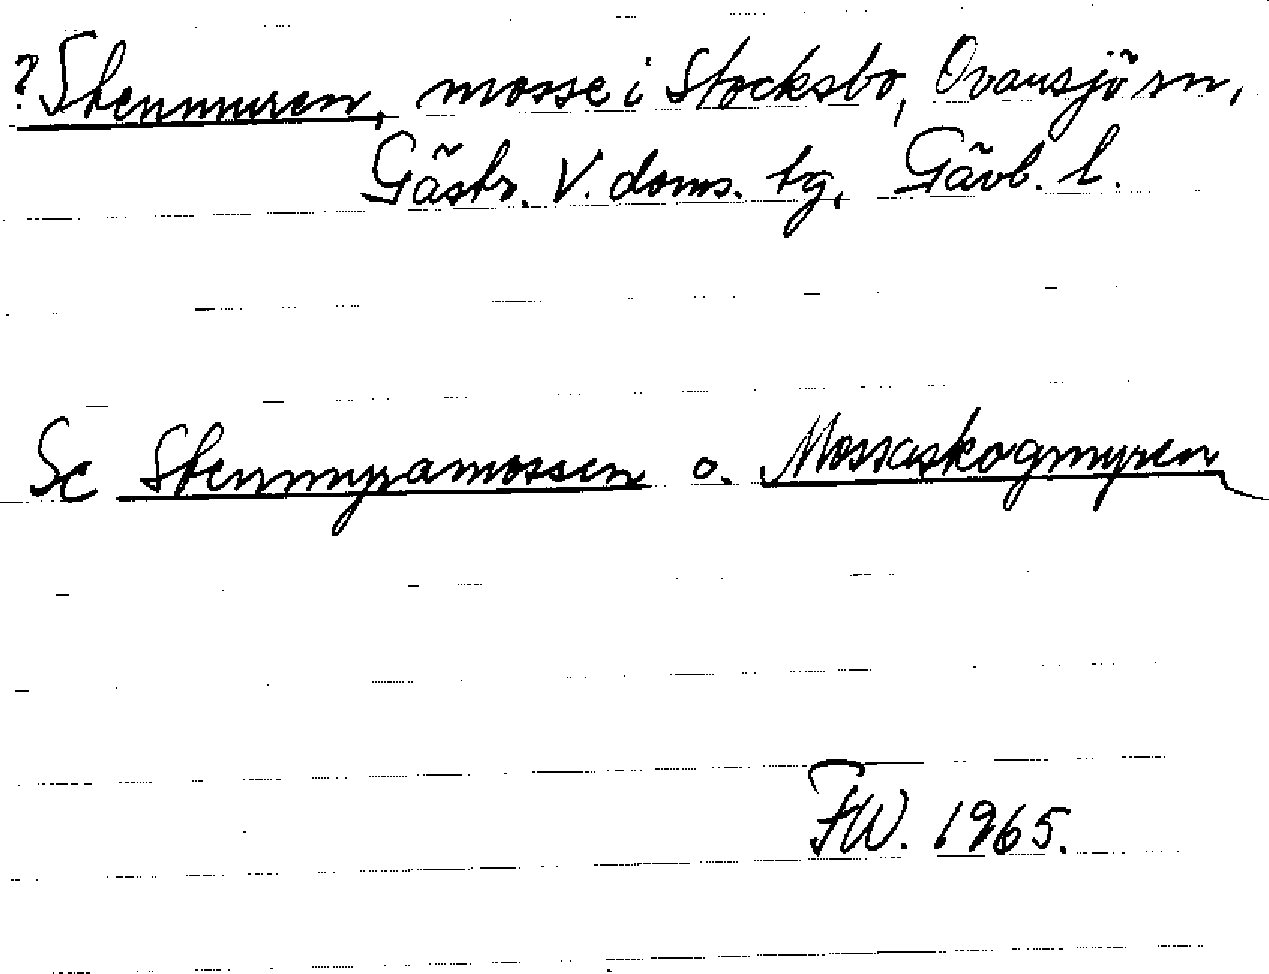 ? Stenmuren, mosse i Stocksbo, Ovansjö sn,
Gästr. V. doms. tg, Gävb. l.
Se Stenmyramossen o. Mossaskogmyren
FW. 1965.